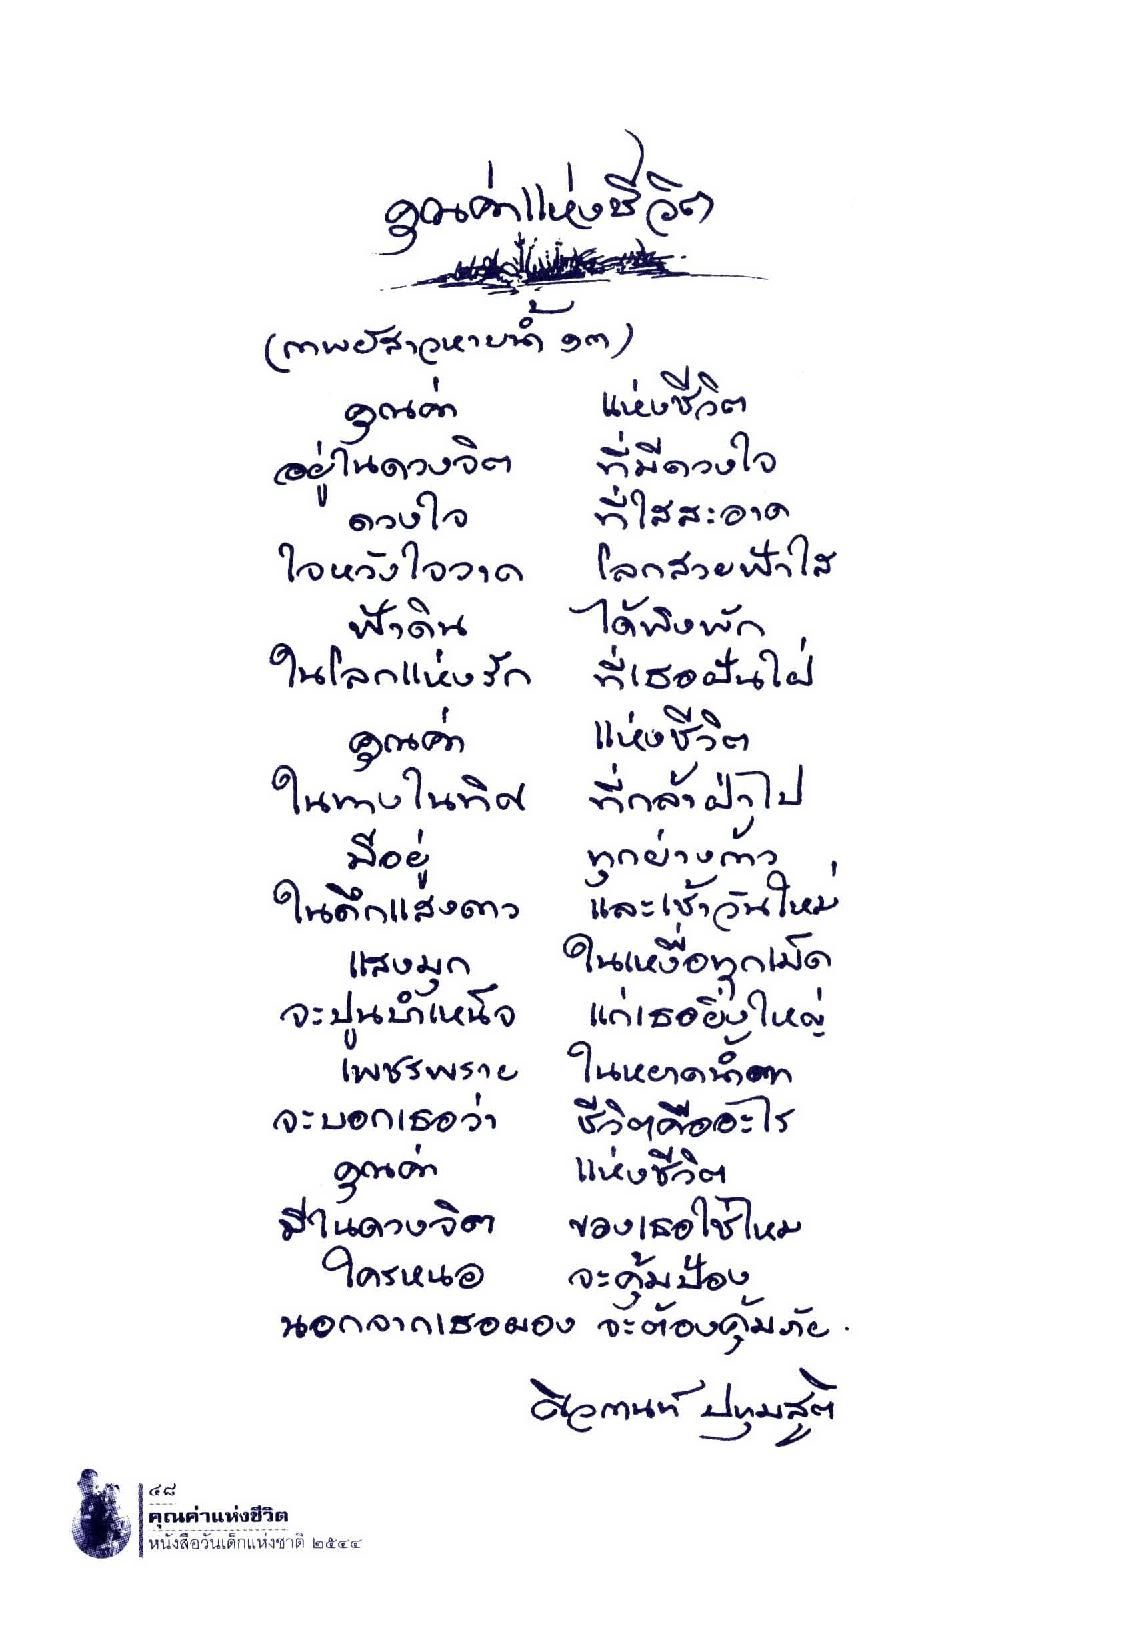 คุณค่าแห่งชีวิต
(กาพย์สาวหายน้ำ ๑๓)
คุณค่า แห่งชีวิต
อยู่ในดวงจิต ที่มีดวงใจ
ดวงใจ ที่ใสสะอาด
ใจหวังใจวาด โลกสวยฟ้าใส
ฟ้าดิน ได้พิงพัก
ในโลกแห่งรัก ที่เธอฝันใฝ่
คุณค่า แห่งชีวิต
ในทางในทิศ ที่กล้าฝ่าไป
มีอยู่ ทุกย่างก้าว
ในดึกแสงดาว และเช้าวันใหม่
แสงมุก ในเหงื่อทุกเม็ด
จะปูนบำเหน็จ แก่เธอยิ่งใหญ่
เพชรพราย ในหยาดน้ำตา
จะบอกเธอว่า ชีวิตคืออะไร
คุณค่า แห่งชีวิต
มีในดวงจิต ของเธอใช่ไหม
ใครหนอ จะคุ้มป้อง
นอกจากเธอมอง จะต้องคุ้มภัย.
ศิวกานท์ ปทุมสูติ
๔๘
คุณค่าแห่งชีวิต
หนังสือวันเด็กแห่งชาติ ๒๕๔๔